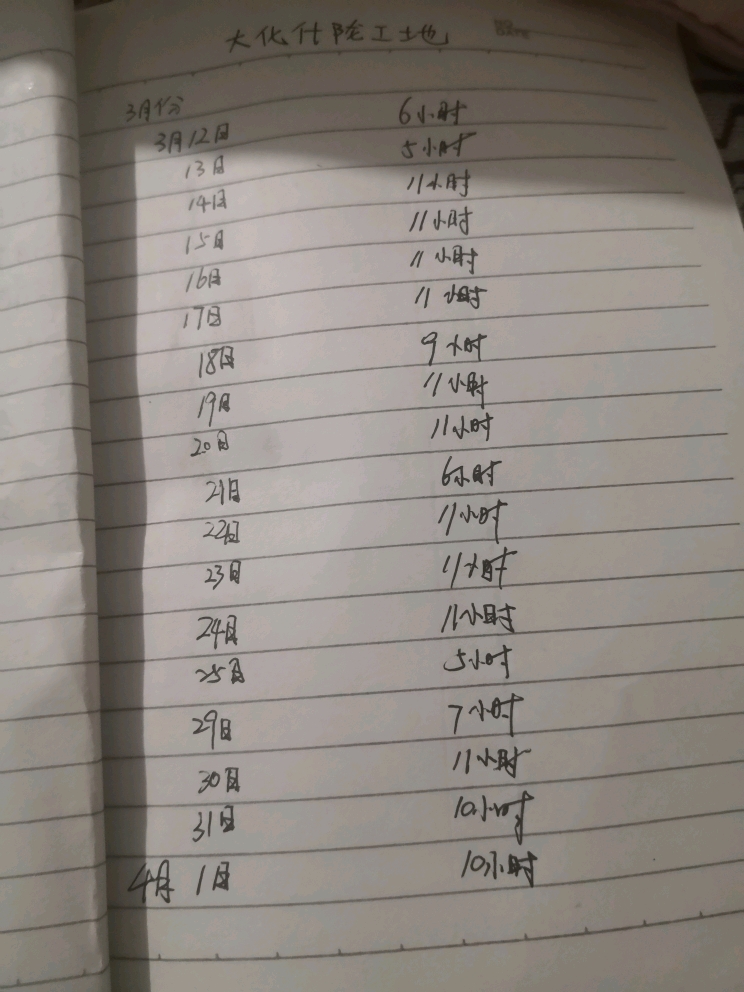 大化什工地
3月份
3月12日 6小时
13日 5小时
14日 11小时
15日 11小时
16日 11小时
17日 11小时
18日 9小时
19日 11小时
20日 11小时
21日 6小时
22日 11小时
23日 11小时
24日 11小时
25日 5小时
29日 7小时
30日 11小时
31日 10小时
4月1日 10小时